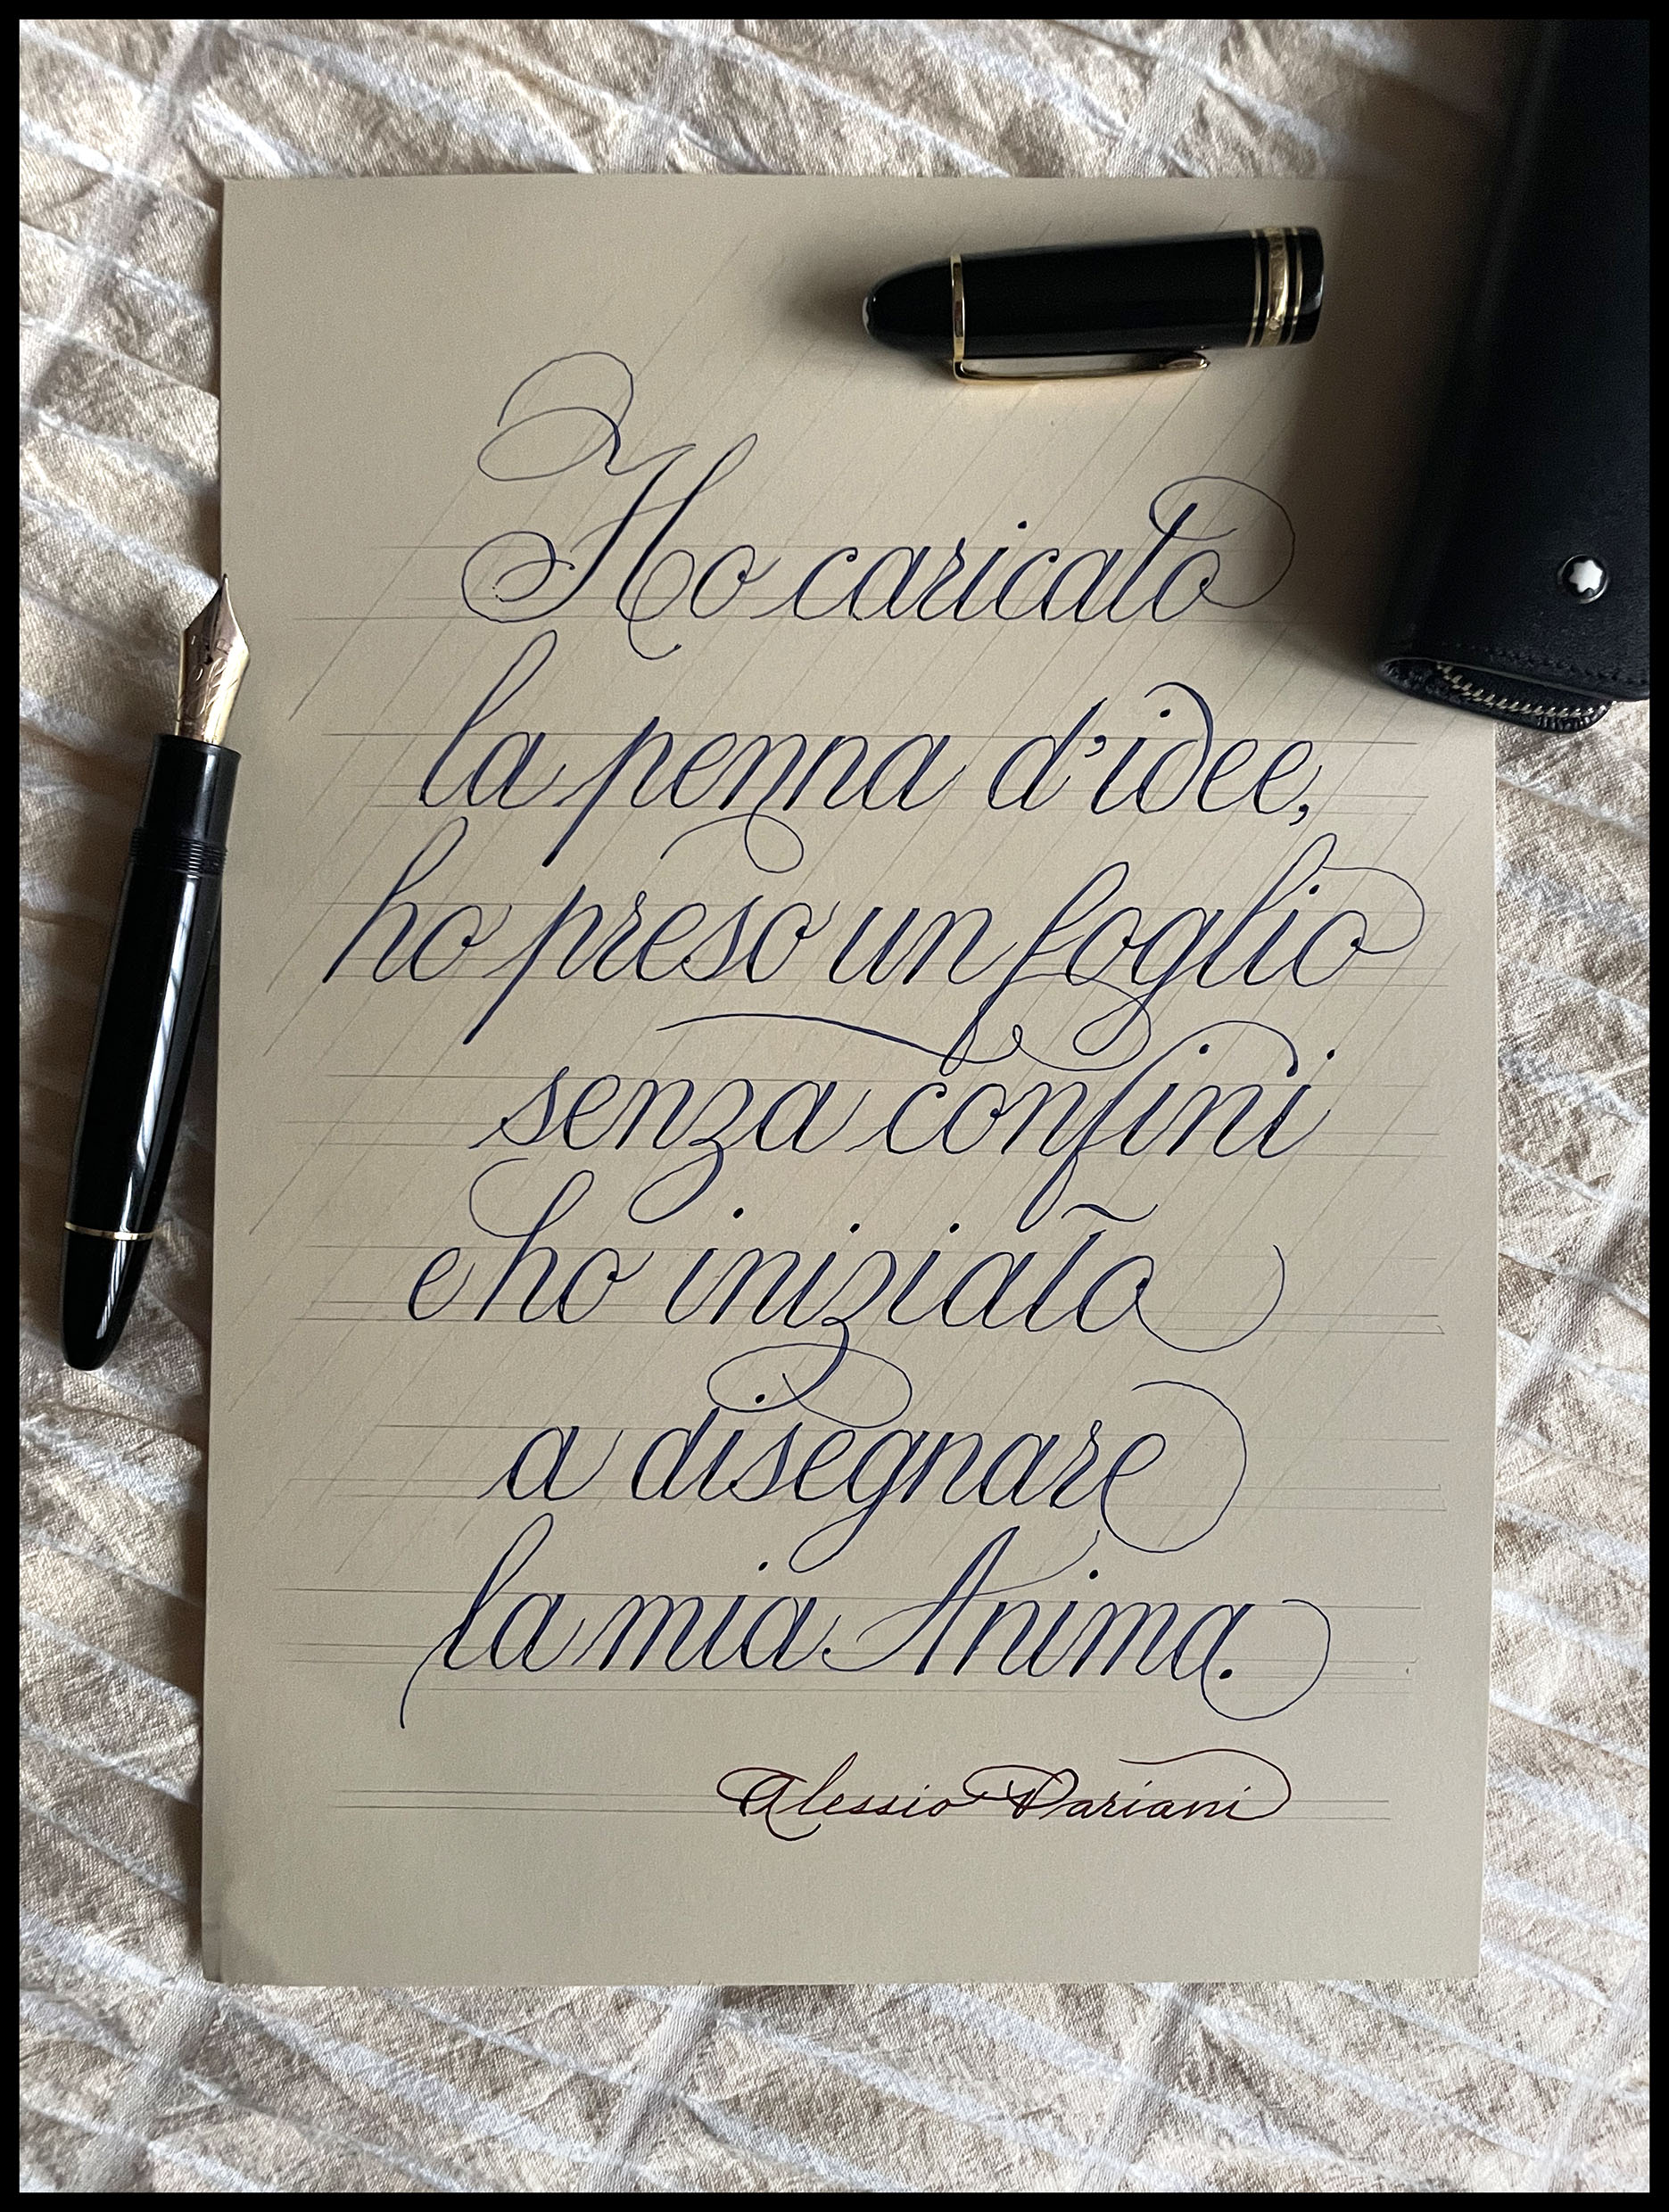 Ho caricato
la penna d'idee,
ho preso un foglio
senza confini
e ho iniziato
a disegnare
la mia Anima.
Alessio Pariani